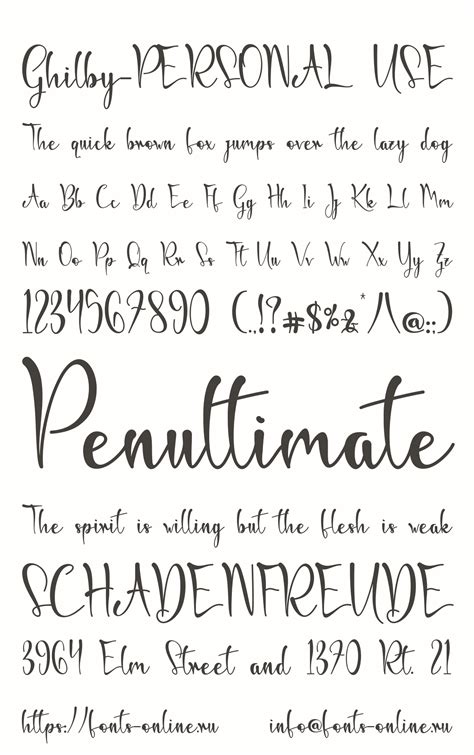 Ghilby-PERSONAL USE
The quick brown fox jumps over the lazy dog
Aa Bb Cc Dd Ee Ff Gg Hh Ii Jj Kk Ll Mm
Nn Oo Pp Qq Rr Ss Tt Uu Vv Ww Xx Yy Zz
1234567890 (.,!?#$%&*/\@:;)
Penultimate
The spirit is willing but the flesh is weak
SCHADENFREUDE
3964 Elm Street and 1370 Rt. 21
https://fonts-online.ru info@fonts-online.ru